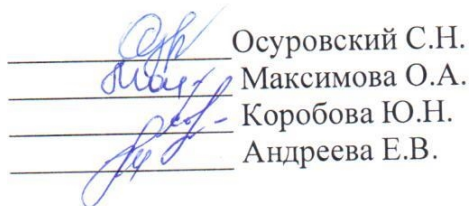 Осуровский С.Н.
Максимова О.А.
Коробова Ю.Н.
Андреева Е.В.